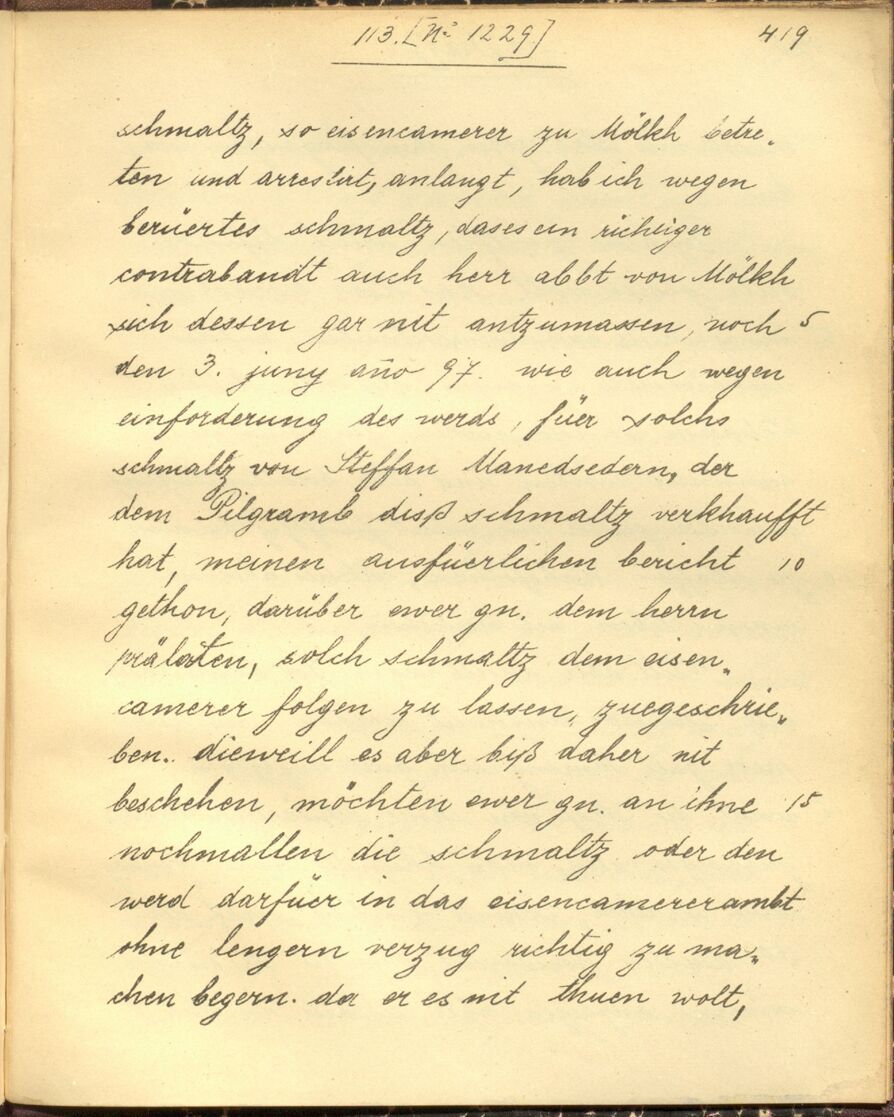 113. [No 1229] 419
schmaltz, so eisencamerer zu Mölkh betre„
ten und arrestirt, anlangt, hab ich wegen
berüertes schmaltz, das es ein richtiger
contrabandt auch herr abbt von Mölkh
sich dessen gar nit antzumassen, noch 5
den 3. juny año 97. wie auch wegen
einforderung des werds, füer solchs
schmaltz von Steffan Manedsedern, der
dem Pilgramb disß schmaltz verkhaufft
hat, meinen ausfüerlichen bericht 10
gethon, darüber ewer gn. dem herrn
prälaten, solch schmaltz dem eisen„
camerer folgen zu lassen, zuegeschrie„
ben. dieweill es aber biß daher nit
beschehen, möchten ewer gn. an ihne 15
nochmallen die schmaltz oder den
werd darfüer in das eisencamererambt
ohne lengern verzug richtig zu ma„
chen begern. da er es nit thuen wolt,